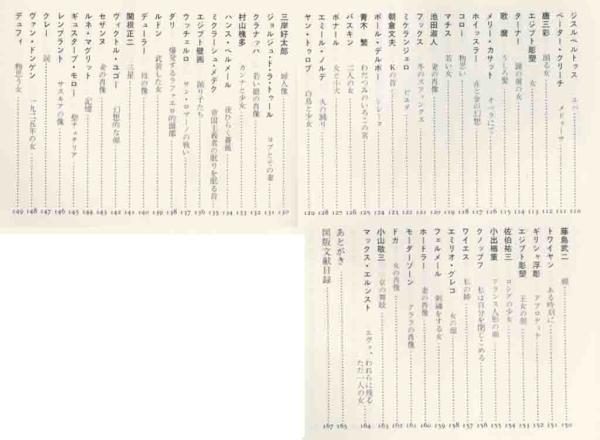 ジスルベルトゥス エバ 110
ペーター・リーチ メドゥーサ 111
唐三彩 踊る女 112
エジプト彫塑 女 113
ターナー 鏡の前の女 114
歌麿 うしろ髪 115
メリー・カサット オペラにて 116
ホイッスラー 金の幻想 117
コロー 物思い 118
マチス 若い女 119
池田淑人 の肖像 120
フックス 冬のスフィンクス 121
ミケランジェロ ピエタ 122
朝倉文夫 Kの首 123
ポール・デルボー シレーヌ 124
青木繁 わだつみのいろこの宮 125
パスキン 二人の女 126
ボナール 女と犬 127
エミール・ノルデ 火の踊り 128
ヤン・トゥロップ 白鳥と少女 129
三岸好太郎 婦人像 130
ジョルジュ・ド・ラ・トゥール ヨブとその妻 131
クラナッハ 若い娘の肖像 132
村山槐多 カンナと少女 133
ハンス・ベルメール 夜ひらく薔薇 134
ミクラーシュ・メデク 帝国主義者の眠りを眠る首 135
エジプト壁画 踊り子たち 136
ウッチェルロ サン・ロマーノの戦い 137
ダリ 爆発するラファエロ的頭部 138
ルドン 武装した女 139
デューラー 母の像 140
関根正二 三星 141
ヴィクトル・ユゴー 幻想的な 142
セザンヌ 妻の肖像 143
ルネ・マグリット 記憶 144
ギュスターブ・モロー 聖チェチリア 145
レンブラント サスキアの像 146
クレー 涙 147
ヴァン・ドンゲン 一九二五年の女 148
デュフィ 物思う女 149
藤島武二 150
トワイヤン ある時刻に 151
ギリシャ浮彫 アフロディテ 152
エジプト彫塑 王女の頭 153
佐伯祐三 ロシアの少女 154
小出楢重 フランス人形の顔 155
クノップフ 私は自分を閉じこめる 156
ワイエス 私の姉 157
エミリオ・グレコ 女の顔 158
フェルメール 刺繍をする女 159
ホードラー 妻の肖像 160
モーダーゾーン クララの肖像 161
ドガ 女の肖像 162
小山敬三 京の舞妓 163
マックス・エルンスト エヴァ、われらに残る
ただ一人の女 164
あとがき 165
図版文献目録 167